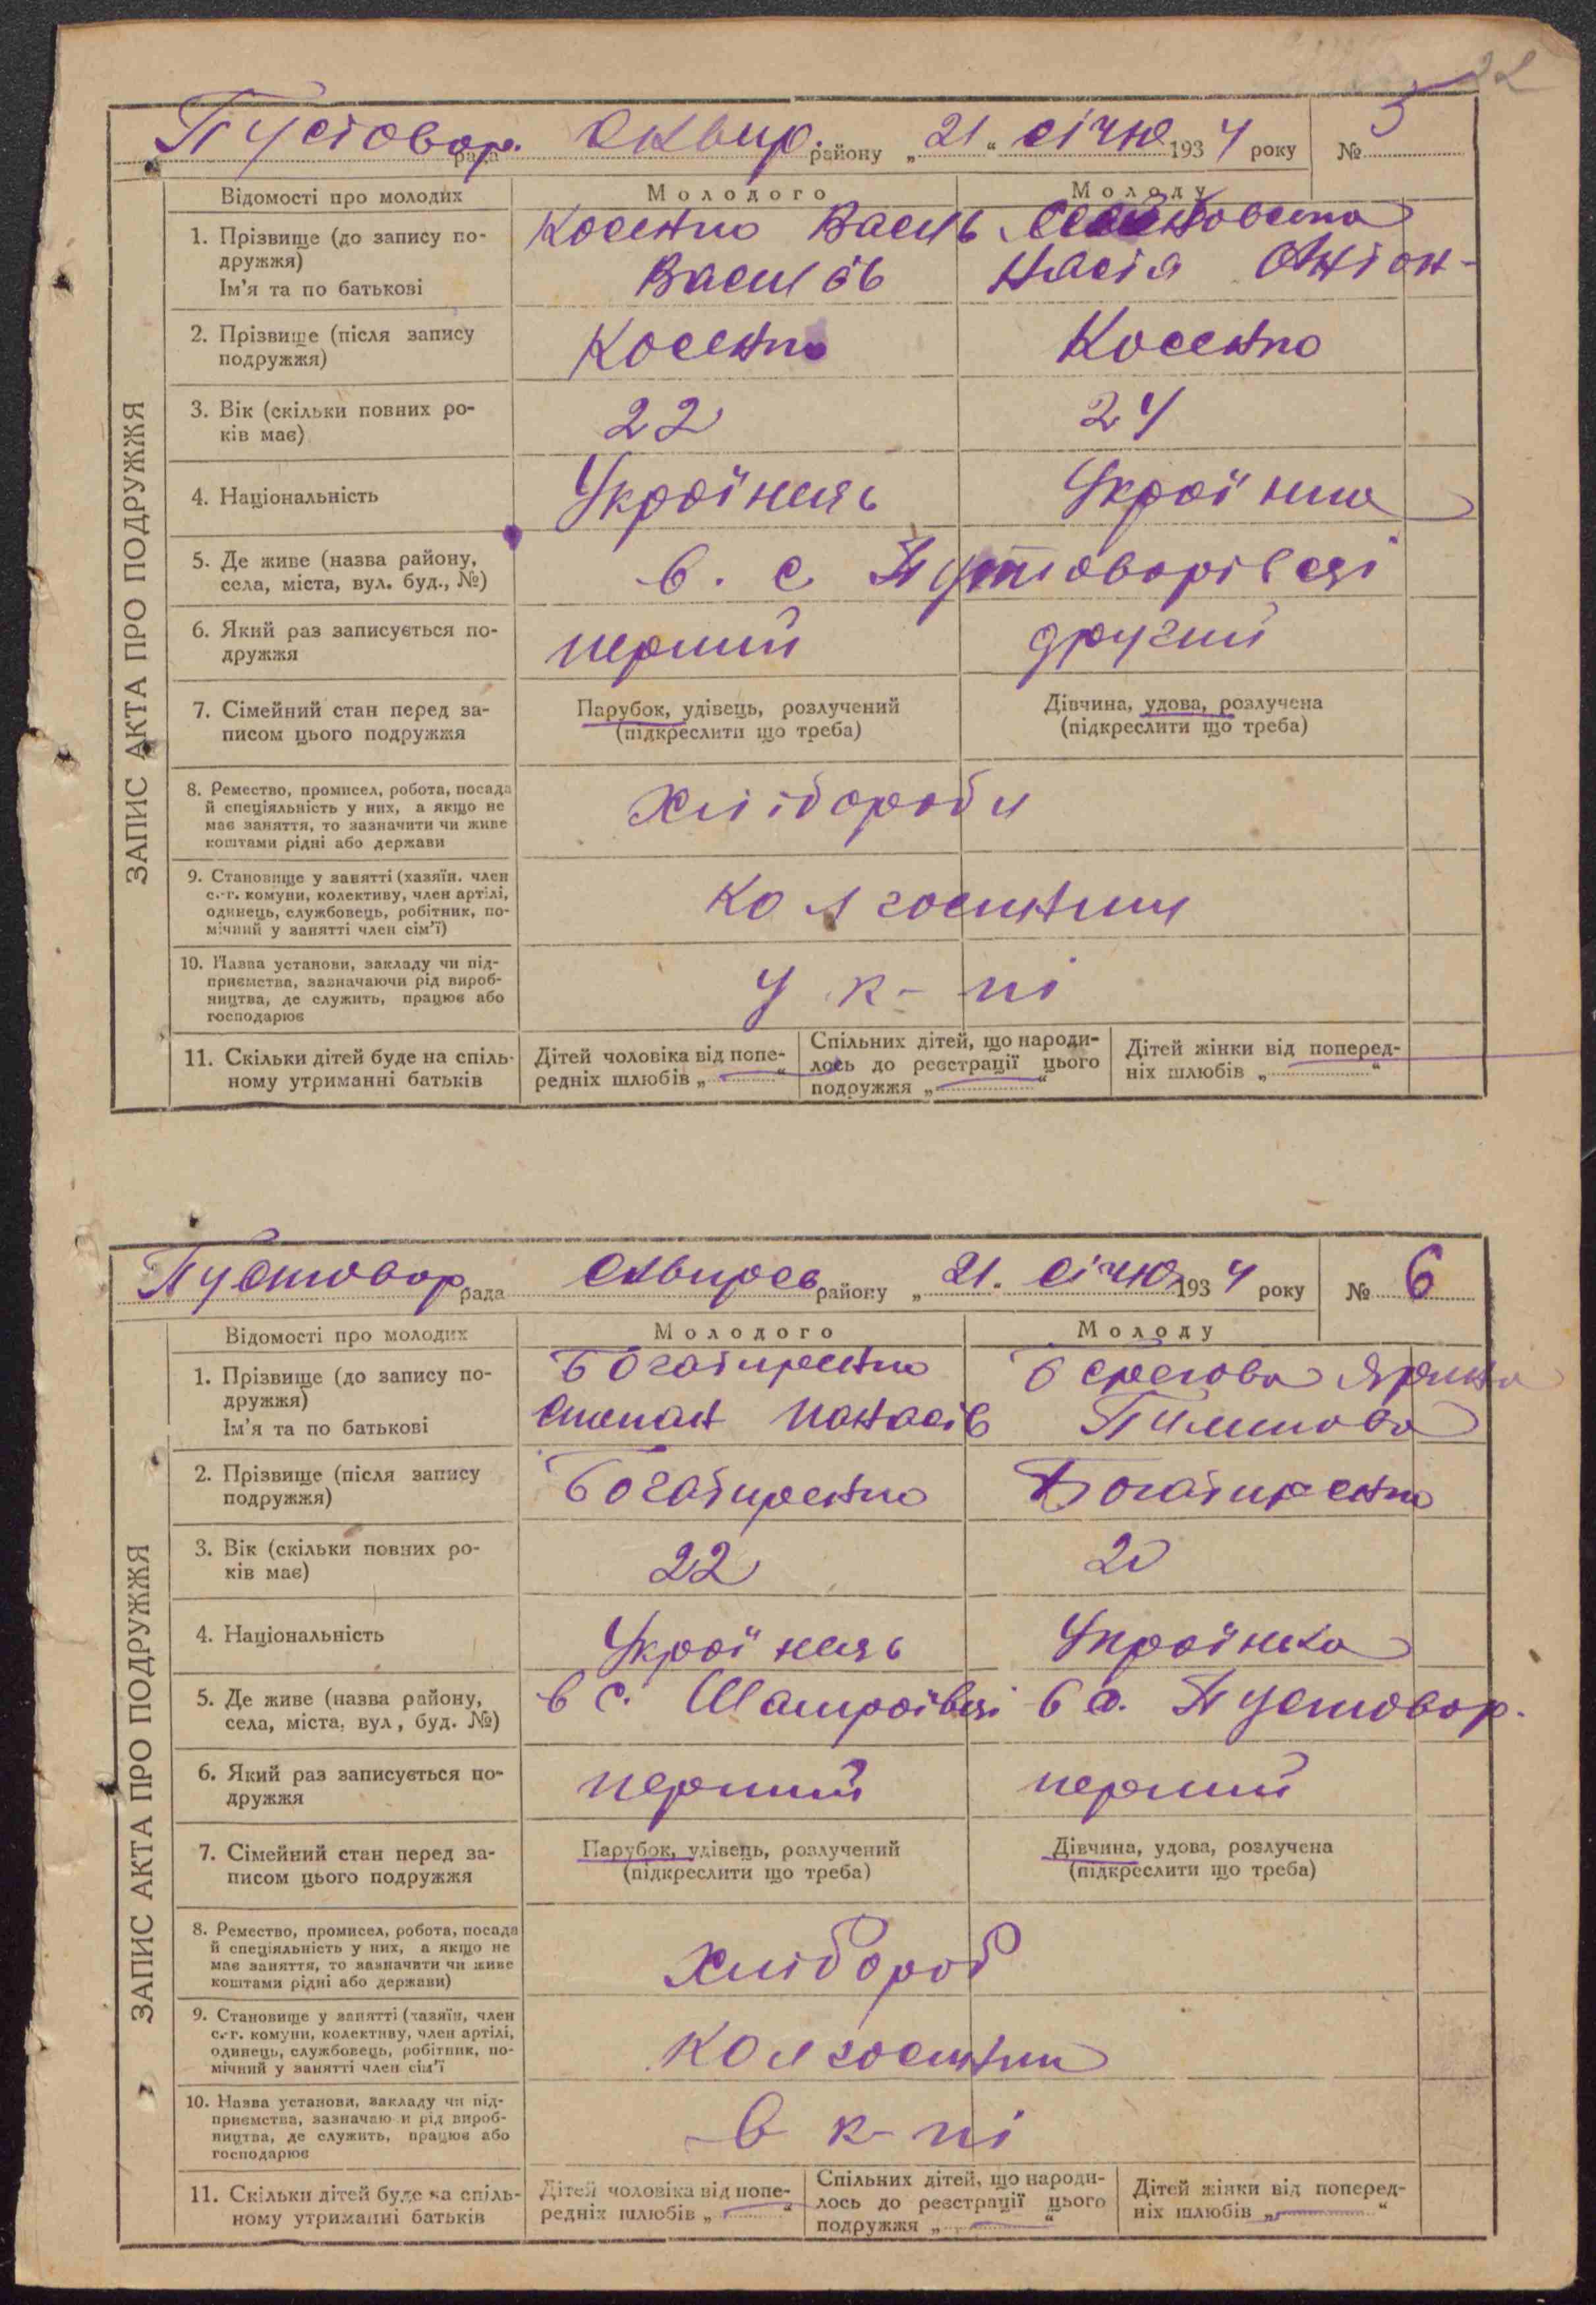 22
Пустовор. рада Сквир. району „21“ січню 1934 року № 5
ЗАПИС АКТА ПРО ПОДРУЖЖЯ
Відомості про молодих Молодого Молоду
1. Прізвище (до запису по-
дружжя)
Ім'я та по батькові
Косенко Василь
Василів
Настя Антон-
2. Прізвище (після запису
подружжя)
Косенко Косенко
3. Вік (скільки повних ро-
ків має)
22 24
4. Національність Українець Українка
5. Де живе (назва району,
села, міста, вул. буд., №)
в. с. Пустоварівсці
6. Який раз записується по-
дружжя
перший другий
7. Сімейний стан перед за-
писом цього подружжя
Парубок, удівець, розлучений
(підкреслити що треба)
Дівчина, удова, розлучена
(підкреслити що треба)
8. Ремество, промисел, робота, посада
й спеціяльність у них, а якщо не
має заняття, то зазначити чи живе
коштами рідні або держави
Хлібороби
9. Становище у занятті (хазяїн. член
с.-г. комуни, колективу, член артілі,
одинець, службовець, робітник, по-
мічний у занятті член сім'ї)
Колгоспники
10. Назва установи, закладу чи під-
приємства, зазначаючи рід вироб-
ництва, де служить, працює або
господарює
У к-пі
11. Скільки дітей буде на спіль-
ному утриманні батьків
Дітей чоловіка від попе-
редніх шлюбів „ — “
Спільних дітей, що народи-
лось до реєстрації цього
подружжя „ — “
Дітей жінки від поперед-
ніх шлюбів „ “
Пустовор рада Сквирсь району „21. січню 1934 року № 6
ЗАПИС АКТА ПРО ПОДРУЖЖЯ
Відомості про молодих Молодого Молоду
1. Прізвище (до запису по-
дружжя)
Ім'я та по батькові
Богатиренко
Степан Панасів
Берегова Ярина
2. Прізвище (після запису
подружжя)
Богатиренко Богатиренко
3. Вік (скільки повних ро-
ків має)
22 20
4. Національність Українець Українка
5. Де живе (назва району,
села, міста, вул, буд. №)
в с. Шапраївці в с. Пустовор.
6. Який раз записується по-
дружжя
перший перший
7. Сімейний стан перед за-
писом цього подружжя
Парубок, удівець, розлучений
(підкреслити що треба)
Дівчина, удова, розлучена
(підкреслити що треба)
8. Ремество, промисел, робота, посада
й спеціяльність у них, а якщо не
має заняття, то зазначити чи живе
коштами рідні або держави)
Хлібороб
9. Становище у занятті (хазяїн, член
с.-г. комуни, колективу, член артілі,
одинець, службовець, робітник, по-
мічний у занятті член сім'ї
Колгоспник
10. Назва установи, закладу чи під-
приємства, зазначаю и рід вироб-
ництва, де служить, працює або
господарює
В к-пі
11. Скільки дітей буде на спіль-
ному утриманні батьків
Дітей чоловіка від попе-
редніх шлюбів „ — “
Спільних дітей, що народи-
лось до реєстрації цього
подружжя „ — “
Дітей жінки від поперед-
ніх шлюбів „ — “